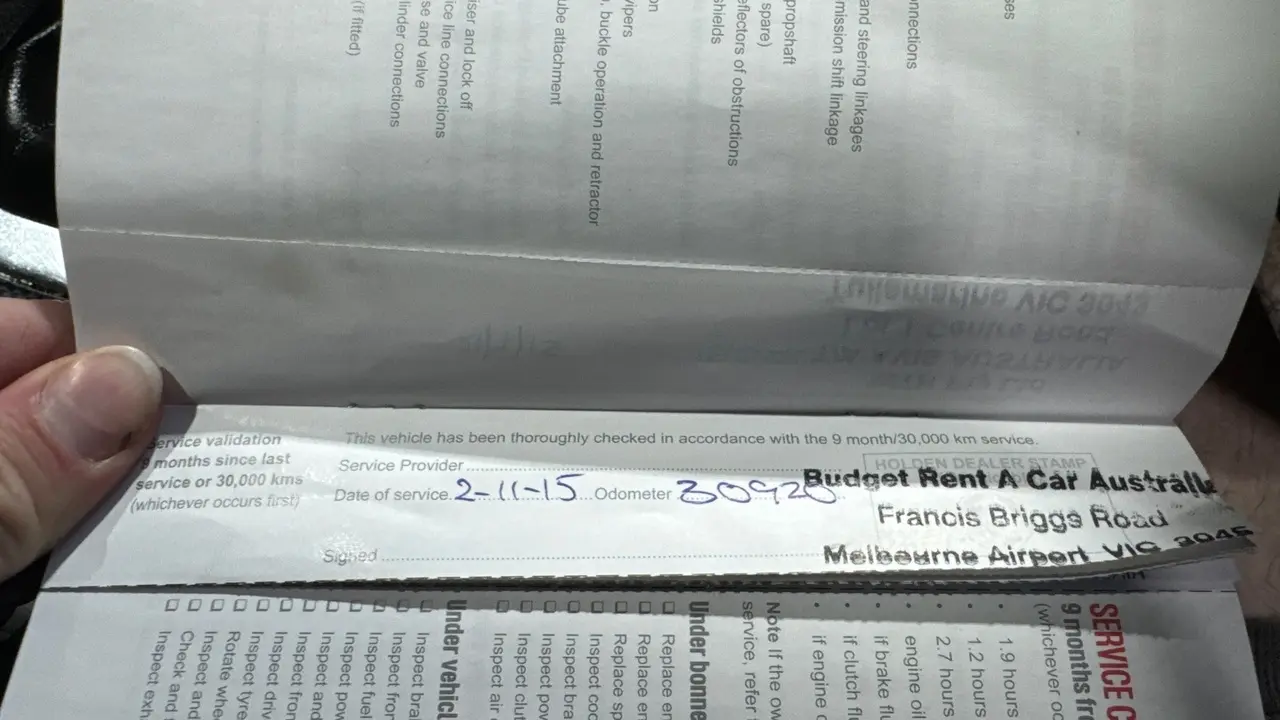 ses
onnections
and steering linkages
mission shift linkage
propshaft
spare)
eflectors of obstructions
shields
on
vipers
, buckle operation and retractor
ube attachment
iser and lock off
ice line connections
se and valve
linder connections
(if fitted)
Tullamarine VIC 3043
Lot 1 Centre Road
AVIS AUSTRALIA
Pty Ltd
Service validation
9 months since last
service or 30,000 kms
(whichever occurs first)
This vehicle has been thoroughly checked in accordance with the 9 month/30,000 km service.
Service Provider
Date of service 2-11-15 Odometer 30920
Signed
HOLDEN DEALER STAMP
Budget Rent A Car Australia
Francis Briggs Road
Melbourne Airport VIC 3045
SERVICE C
9 months fr
(whichever oc
• 1.9 hours
• 1.2 hours
• 2.7 hours
engine oil
• if brake flu
• if clutch flu
• if engine c
Note If the ow
service, refer t
Under bonne
☐ Replace en
☐ Replace en
☐ Replace sp
☐ Inspect coo
☐ Inspect bra
☐ Inspect pow
☐ Inspect clut
☐ Inspect air c
Under vehicl
☐ Inspect brak
☐ Inspect fron
☐ Inspect fuel
☐ Inspect pow
☐ Inspect and
☐ Inspect fron
☐ Inspect driv
☐ Inspect tyre
☐ Rotate whe
☐ Inspect and
☐ Check and
☐ Inspect exh